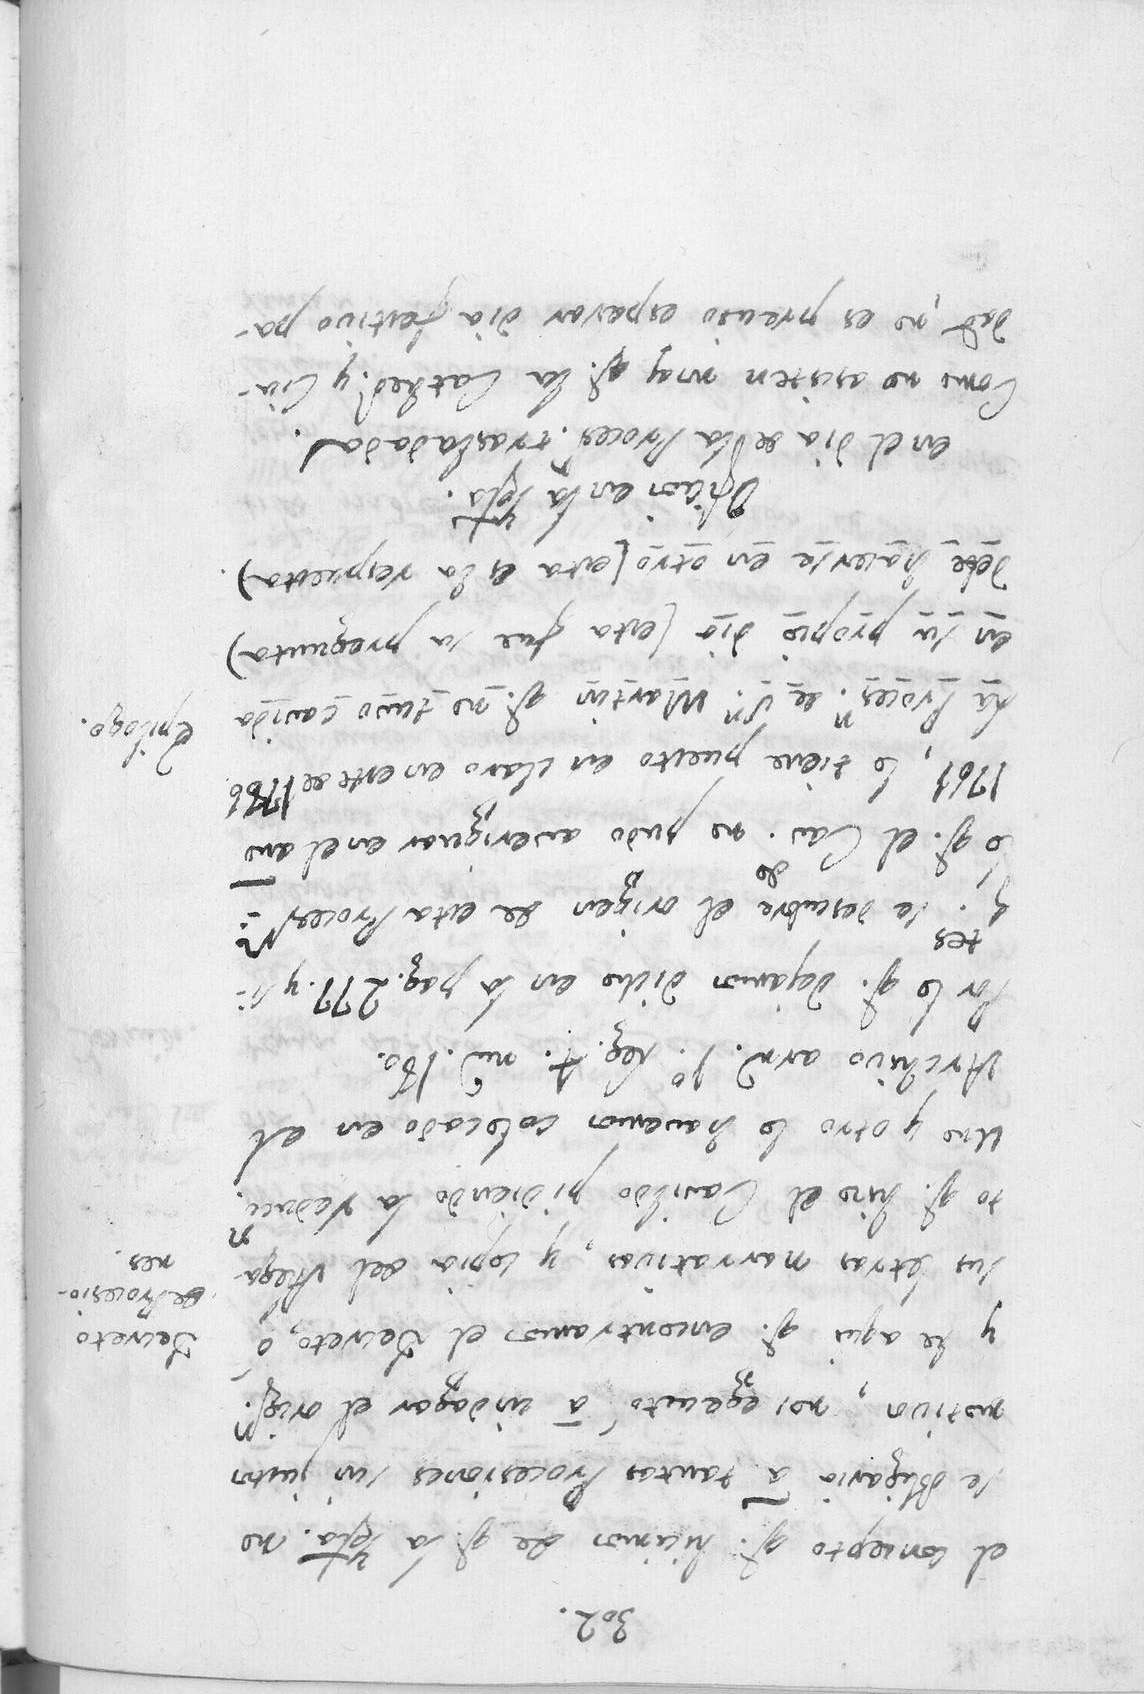 302.
el concepto q.e hicimos de q.e la Ygla. no
se obligaria â tantas Procesiones sin justos
motivos, nos egecutô â indagar el orig.n
y he aqui q.e encontramos el Decreto, ô
Decreto
de Procesio-
nes.
sus letras narrativas, y copia del Alega-
to q.e hizo el Cavildo pidiendo la reducc.n
Uno y otro lo havemos colocado en el
Archivo arm. 1.o leg. 4. nu. 180.
Por lo q.e dejamos dicho en la pag. 277. y si-
g.tes se descubre el origen de esta Proces.n
lo q.e el Cav.do no pudo averiguar en el año
1761, lo tiene puesto en claro en este de 1786.
Epilogo.
La Proces.n de S.n Martin q.e no tuvo cavida
en su propio dia (esta fue la pregunta)
debe hacerse en otro (esta es la respuesta).
Oficios en la Ygla.
en el dia de la Proces.n trasladada.
Como no asisten mas q.e la Cathed.l y Ciu-
dad, no es preciso esperar dia festivo pa-